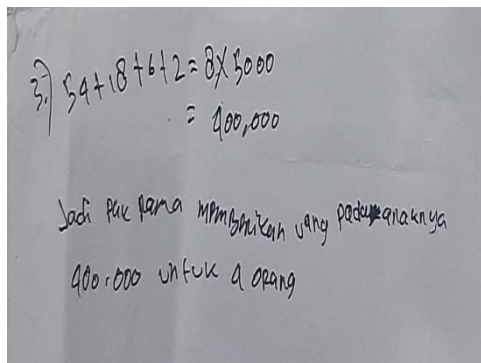 3.) 54+18+6+2=8 x 5000
= 400,000
Jadi pak rama memberikan uang pada anaknya
400.000 untuk 4 orang